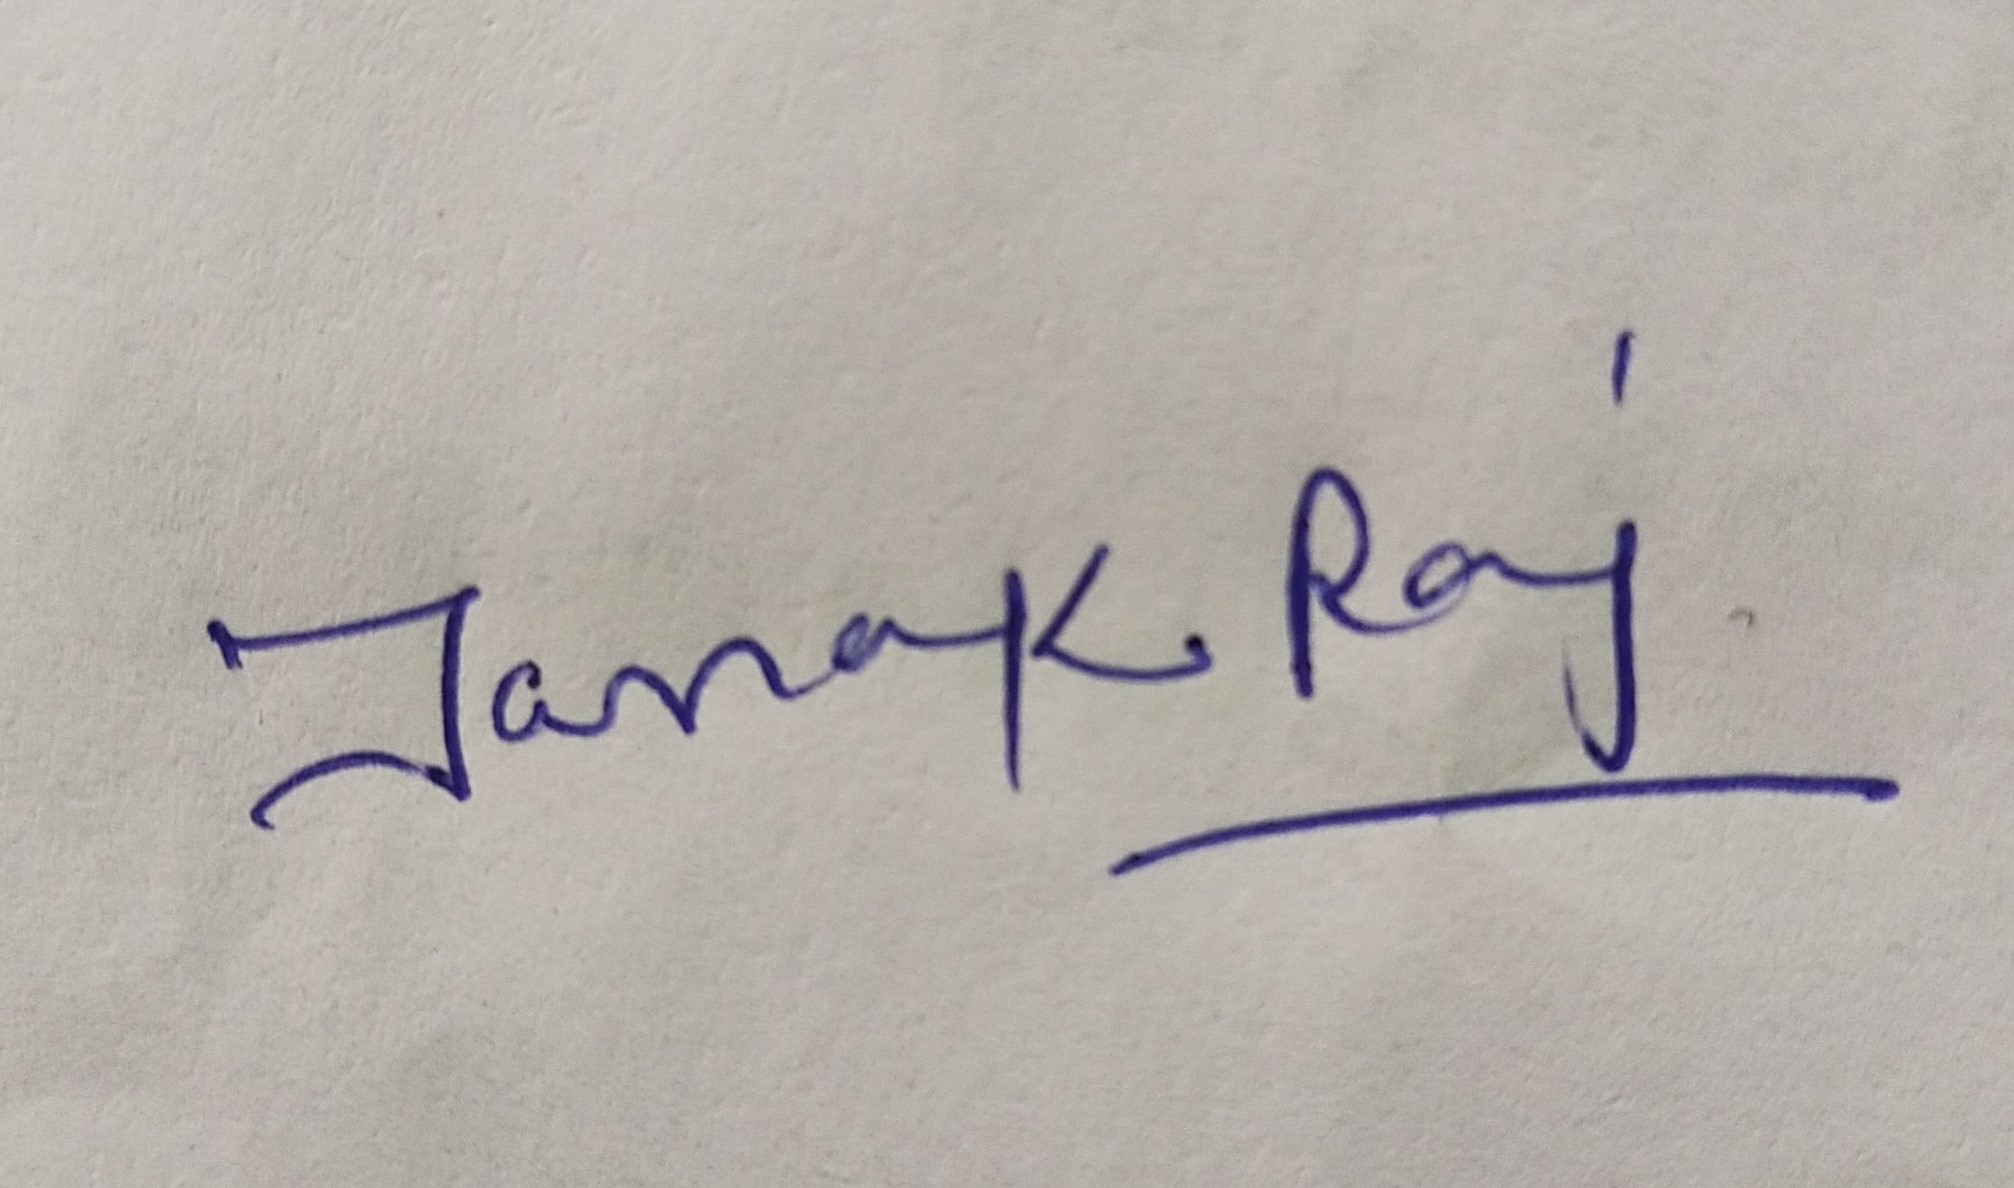 Janak Raj